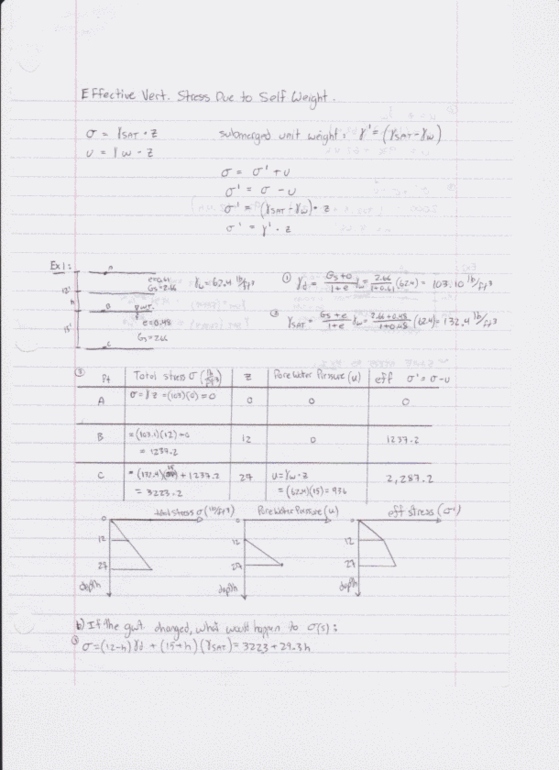 Effective Vert. Stress Due to Self Weight.
σ = γSAT · z    submerged unit weight: γ' = (γSAT - γw)
u = γw - z
σ = σ' + u
σ' = σ - u
σ' = (γSAT - γw) · z
σ' = γ' · z
Ex1:
A
12'
Gs=2.66
B
15'
e=0.48
Gs=2.66
C
γw=62.4 lb/ft³
① γd = (Gs+0)/(1+e) γw = 2.66/(1+0.61) (62.4) = 103.10 lb/ft³
② γSAT = (Gs+e)/(1+e) γw = (2.66+0.48)/(1+0.48) (62.4) = 132.4 lb/ft³
③ Pt | Total stress σ (lb/ft²) | z | Pore Water Pressure (u) | eff σ' = σ - u
A | σ = γ z = (103)(0) = 0 | 0 | 0 | 0
B | = (103.1)(12) + 0 | 12 | 0 | 1237.2
= 1237.2
C | = (132.4)(15) + 1237.2 | 27 | u = γw - z | 2,287.2
= 3223.2 | = (62.4)(15) = 936
total stress σ (lb/ft²)    Pore Water Pressure (u)    eff stress (σ')
0    0    0
12    12    12
27    27    27
depth    depth    depth
b) If the gwt. changed, what would happen to σ(s):
③ σ = (12-h) γd + (15+h) (γSAT) = 3223 + 29.3h